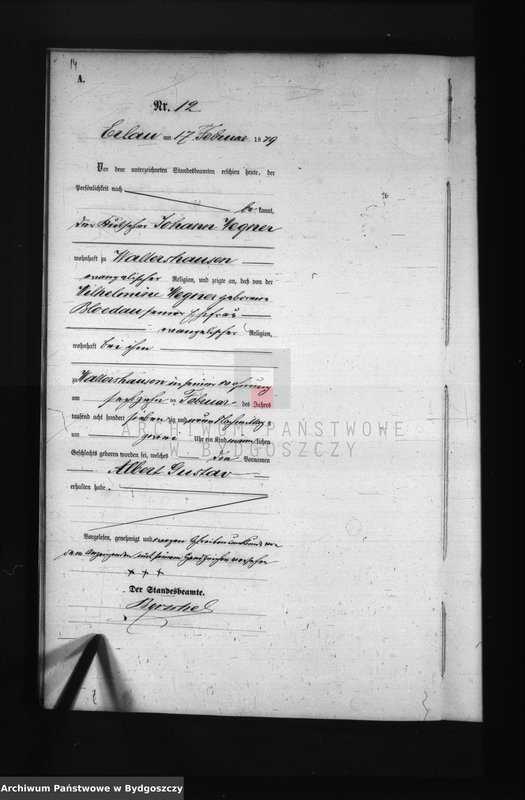 14
A.
Nr. 12
Erlau am 17 Februar 1879
Vor dem unterzeichneten Standesbeamten erschien heute, der
Persönlichkeit nach
be kannt,
der Kutscher Johann Wegner
wohnhaft zu Waltershausen
evangelischer Religion, und zeigte an, daß von der
Wilhelmine Wegner geborene
Bloedau seiner Ehefrau
evangelischer Religion,
wohnhaft bei ihm
zu Waltershausen in seiner Wohnung
am sechzehn ten Februar des Jahres
tausend acht hundert sieben zig und neun Nachmittags
um zwei Uhr ein Kind männlichen
Geschlechts geboren worden sei, welches die Vornamen
Albert Gustav
erhalten habe.
Vorgelesen, genehmigt und wegen Schreibensunkunde von
dem Anzeigenden mit seinem Handzeichen versehen
+++
Der Standesbeamte.
ARCHIWUM PAŃSTWOWE
W BYDGOSZCZY
Archiwum Państwowe w Bydgoszczy